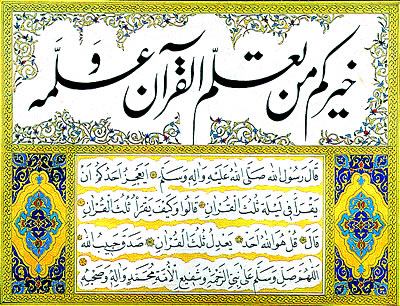 خيركم من تعلم القرآن وعلمه
قَالَ رَسُولُ اللّٰه صَلَّى اللّٰهُ عَلَيْهِ وَاٰلِهِ وَسَلَّمَ أَيَعْجِزُ أَحَدُكُمْ اَنْ
يَقْرَأَ فِى لَيْلَةٍ ثُلُثَ الْقُرْاٰنِ قَالُوا وَكَيْفَ يَقْرَأُ ثُلُثَ الْقُرْاٰنِ
قَالَ قُلْ هُوَ اللّٰهُ اَحَدٌ يَعْدِلُ ثُلُثَ الْقُرْاٰنِ صَدَقَ حَبِيبُ اللّٰه
اللّٰهُمَّ صَلِّ وَسَلِّمْ عَلٰى نَبِىِّ الرَّحْمَةِ وَشَفِيعِ الْاُمَّةِ مُحَمَّدٍ وَاٰلِهِ وَصَحْبِهِ